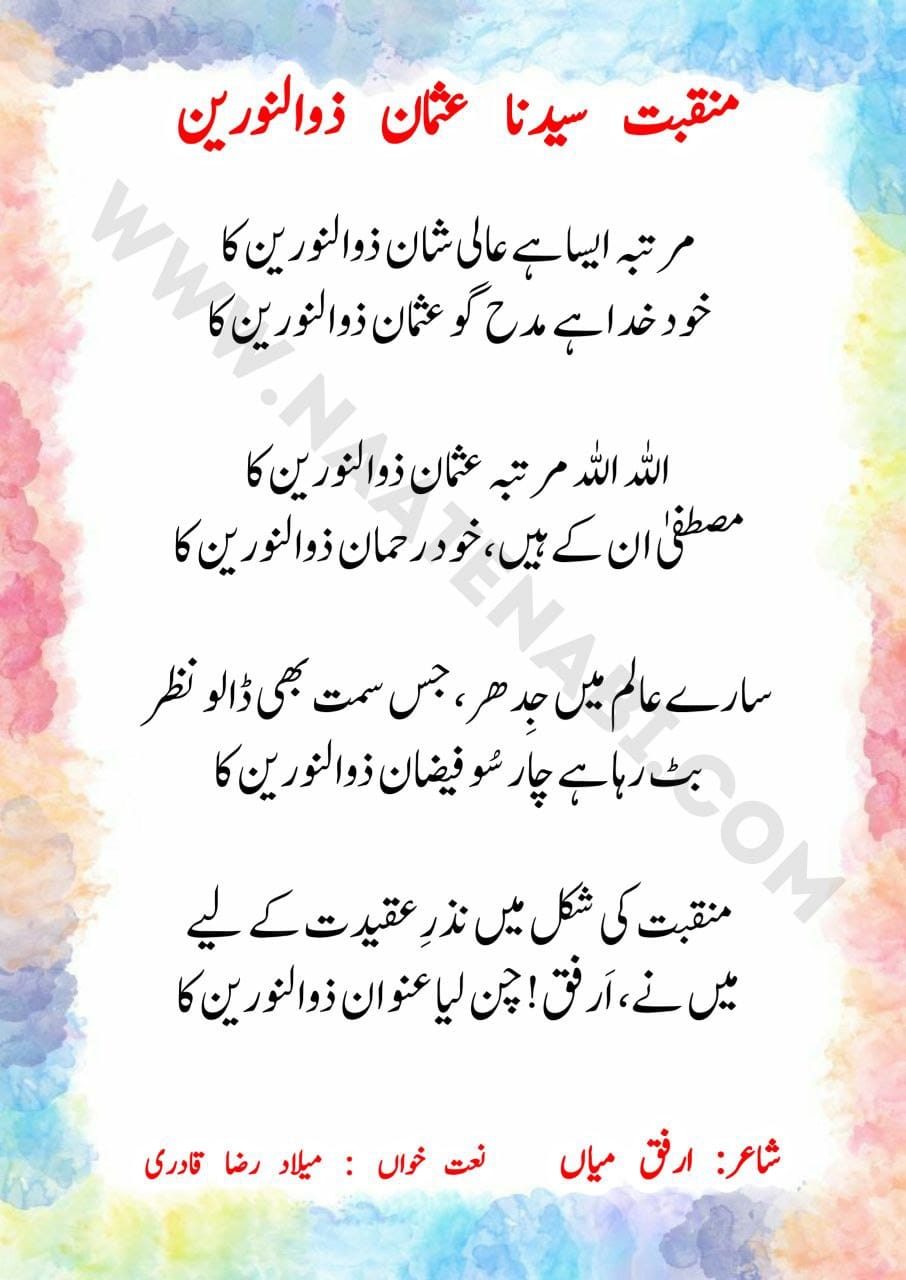 منقبت سیدنا عثمان ذوالنورین
مرتبہ ایسا ہے عالی شان ذوالنورین کا
خود خدا ہے مدح گو عثمان ذوالنورین کا
اللہ اللہ مرتبہ عثمان ذوالنورین کا
مصطفیٰ ان کے ہیں، خود رحمان ذوالنورین کا
سارے عالم میں جِدھر، جس سمت بھی ڈالو نظر
بٹ رہا ہے چار سُو فیضان ذوالنورین کا
منقبت کی شکل میں نذرِ عقیدت کے لیے
میں نے، اَرفق! چن لیا عنوان ذوالنورین کا
شاعر: ارفق میاں نعت خواں : میلاد رضا قادری
WWW.NAATENABI.COM